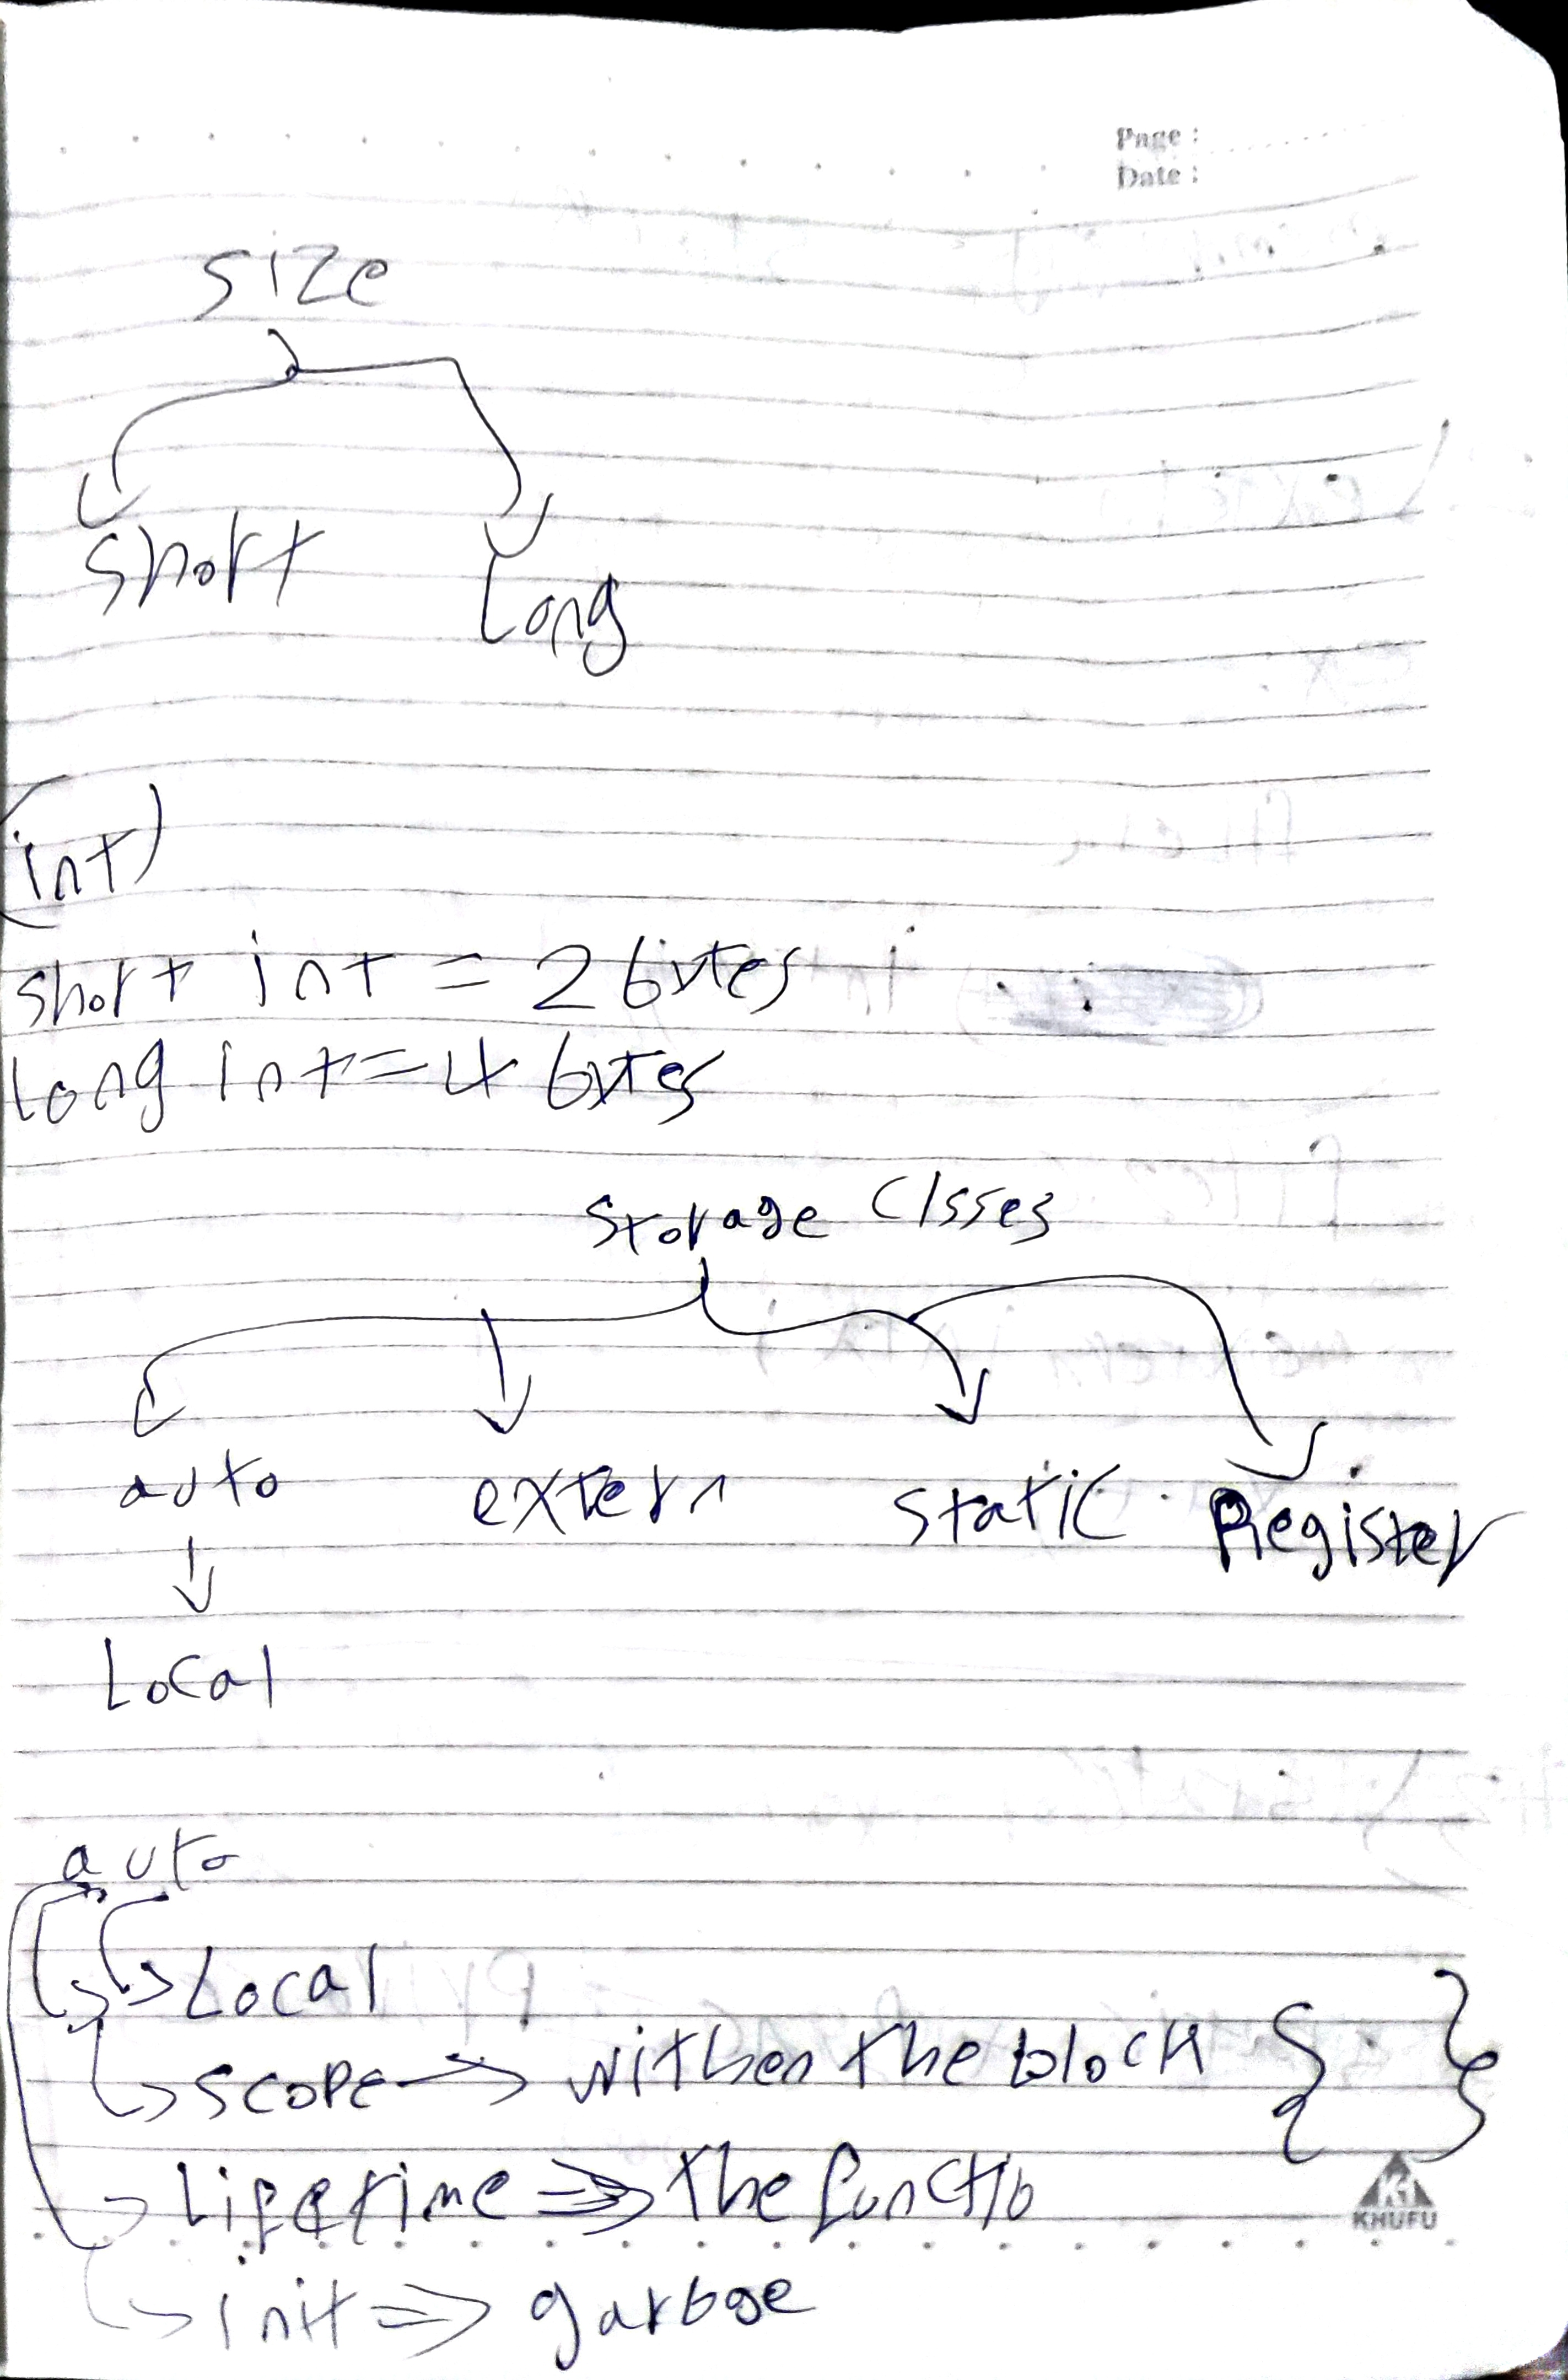 Page :
Date :
size
short
Long
(int)
short int = 2 bytes
Long int = 4 bytes
Storage Clsses
auto extern static Register
Local
auto
Local
scope → withen the block { }
Lifetime ⇒ the functio
init ⇒ garbge
KHUFU